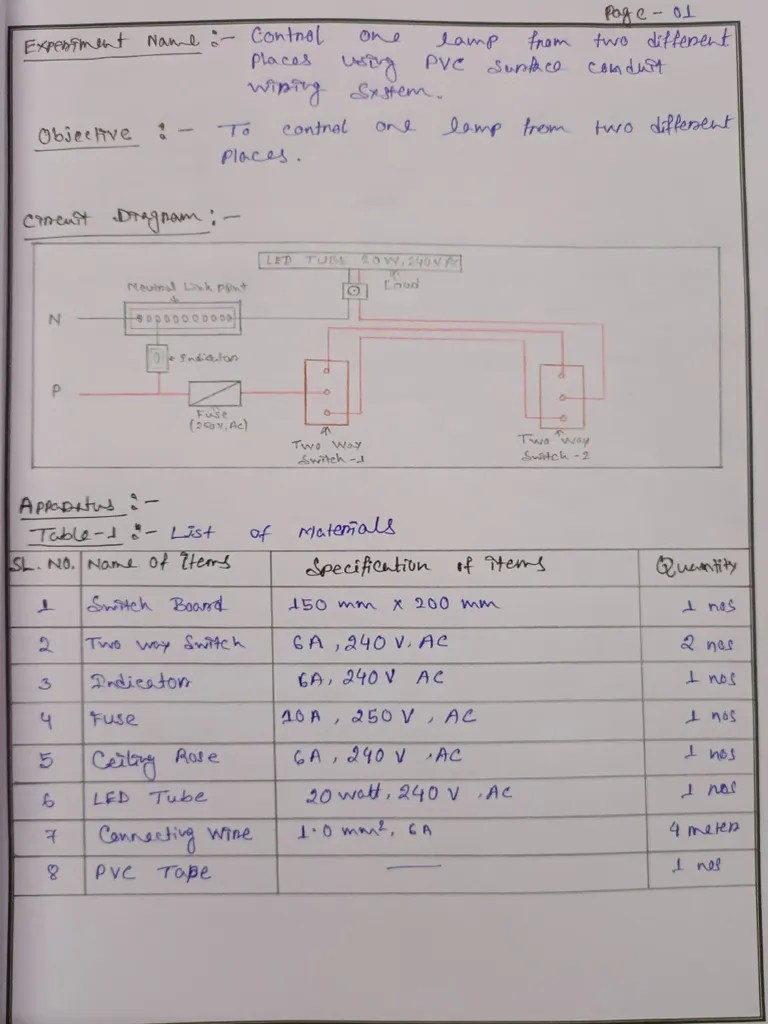 Page - 01
Experiment Name :- Control one lamp from two different
places using PVC surface conduit
wiring system.
Objective :- To control one lamp from two different
places.
Circuit Diagram :-
LED TUBE 20W, 240V AC
Load
Neutral Link point
N
Indicator
P
Fuse
(250V, AC)
Two Way
Switch -1
Two Way
Switch -2
Apparatus :-
Table-1 :- List of Materials
SL. NO. Name Of Items Specification of items Quantity
1 Switch Board 150 mm x 200 mm 1 nos
2 Two way Switch 6A, 240 V, AC 2 nos
3 Indicator 6A, 240 V AC 1 nos
4 Fuse 10A, 250 V, AC 1 nos
5 Ceiling Rose 6A, 240 V, AC 1 nos
6 LED Tube 20 watt, 240 V, AC 1 nos
7 Connecting Wire 1.0 mm², 6A 4 meter
8 PVC Tape — 1 nos